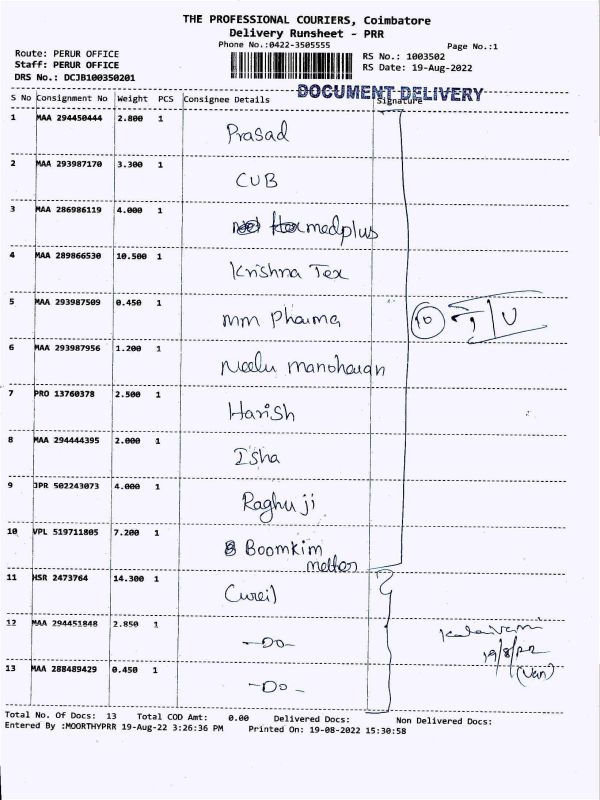 THE PROFESSIONAL COURIERS, Coimbatore
Delivery Runsheet - PRR
Phone No.:0422-3505555
Page No.:1
Route: PERUR OFFICE
Staff: PERUR OFFICE
DRS No.: DCJB100350201
RS No.: 1003502
RS Date: 19-Aug-2022
DOCUMENT DELIVERY
S No Consignment No Weight PCS Consignee Details Signature
1 MAA 294450444 2.800 1 Prasad
2 MAA 293987170 3.300 1 CUB
3 MAA 286986119 4.000 1 medplus
4 MAA 289866530 10.500 1 Krishna Tex
5 MAA 293987509 0.450 1 mm Pharma
10
6 MAA 293987956 1.200 1 Neelu
7 PRO 13760378 2.500 1 Harish
8 MAA 294444395 2.000 1 Isha
9 JPR 502243073 4.000 1 Raghu ji
10 VPL 519711805 7.200 1 Boomkim
11 HSR 2473764 14.300 1
12 MAA 294451848 2.850 1 -Do-
19/8/22
(Van)
13 MAA 288489429 0.450 1 -Do-
Total No. Of Docs: 13 Total COD Amt: 0.00 Delivered Docs: Non Delivered Docs:
Entered By :MOORTHYPRR 19-Aug-22 3:26:36 PM Printed On: 19-08-2022 15:30:58